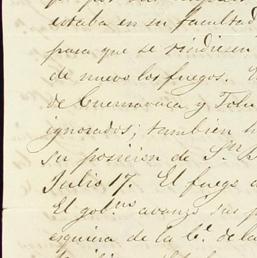 estaba en su facultad
para que se rindiesen
de nuevo los fuegos.
de Cuernavaca y Tolu
ignorados; tambien h
su posicion de Sn
Julio 17. El fuego
El gobno avanzó sus p
esquina de la Ca. de la